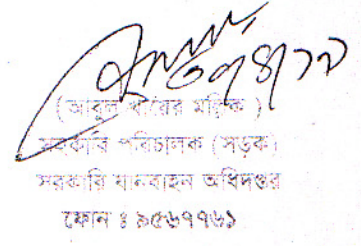 (আবুল খায়ের মল্লিক)
সহকারি পরিচালক (সড়ক)
সরকারি যানবাহন অধিদপ্তর
ফোন ঃ ৯৫৬৭৭৬১